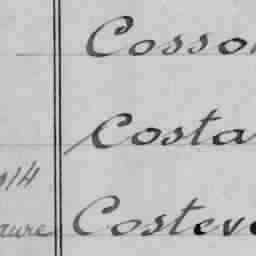 Cosso
Costa
14
aure Costev